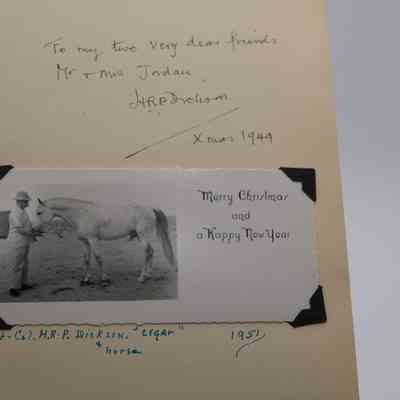 To my two very dear friends
Mr & Mrs Jordan
H.R.P. Dickson
Xmas 1949
Merry Christmas
and
a Happy New Year
t-Col. H.R.P. Dickson. "Elgar" 1951
& horse